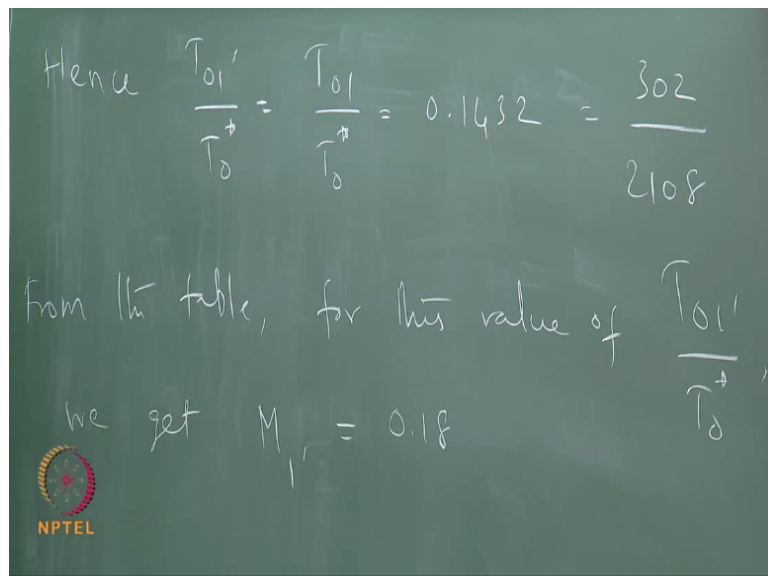 Hence T01' / T0* = T01 / T0* = 0.1432 = 302 / 2108
From the table, for this value of T01' / T0*,
we get M1' = 0.18
NPTEL